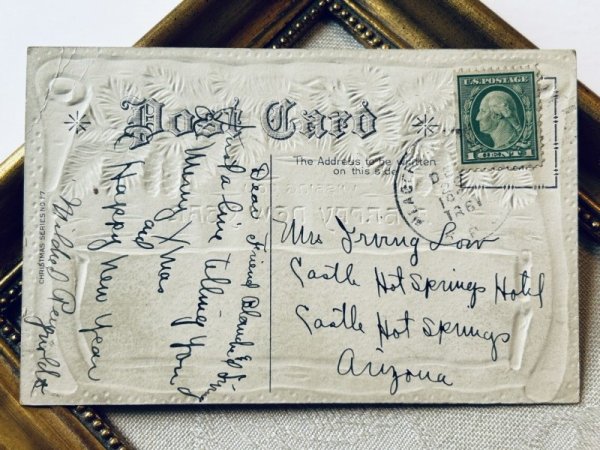 Post Card
U.S. POSTAGE
1 CENT 1
The Address to be written
on this side
HAPPY NEW YEAR
CHRISTMAS SERIES NO. 77
Dear Friend Blanch &
a line telling you
Merry Xmas
and
Happy New Year
Mildred Reynolds
Mrs Irving Low
Castle Hot Springs Hotel
Castle Hot Springs
Arizona